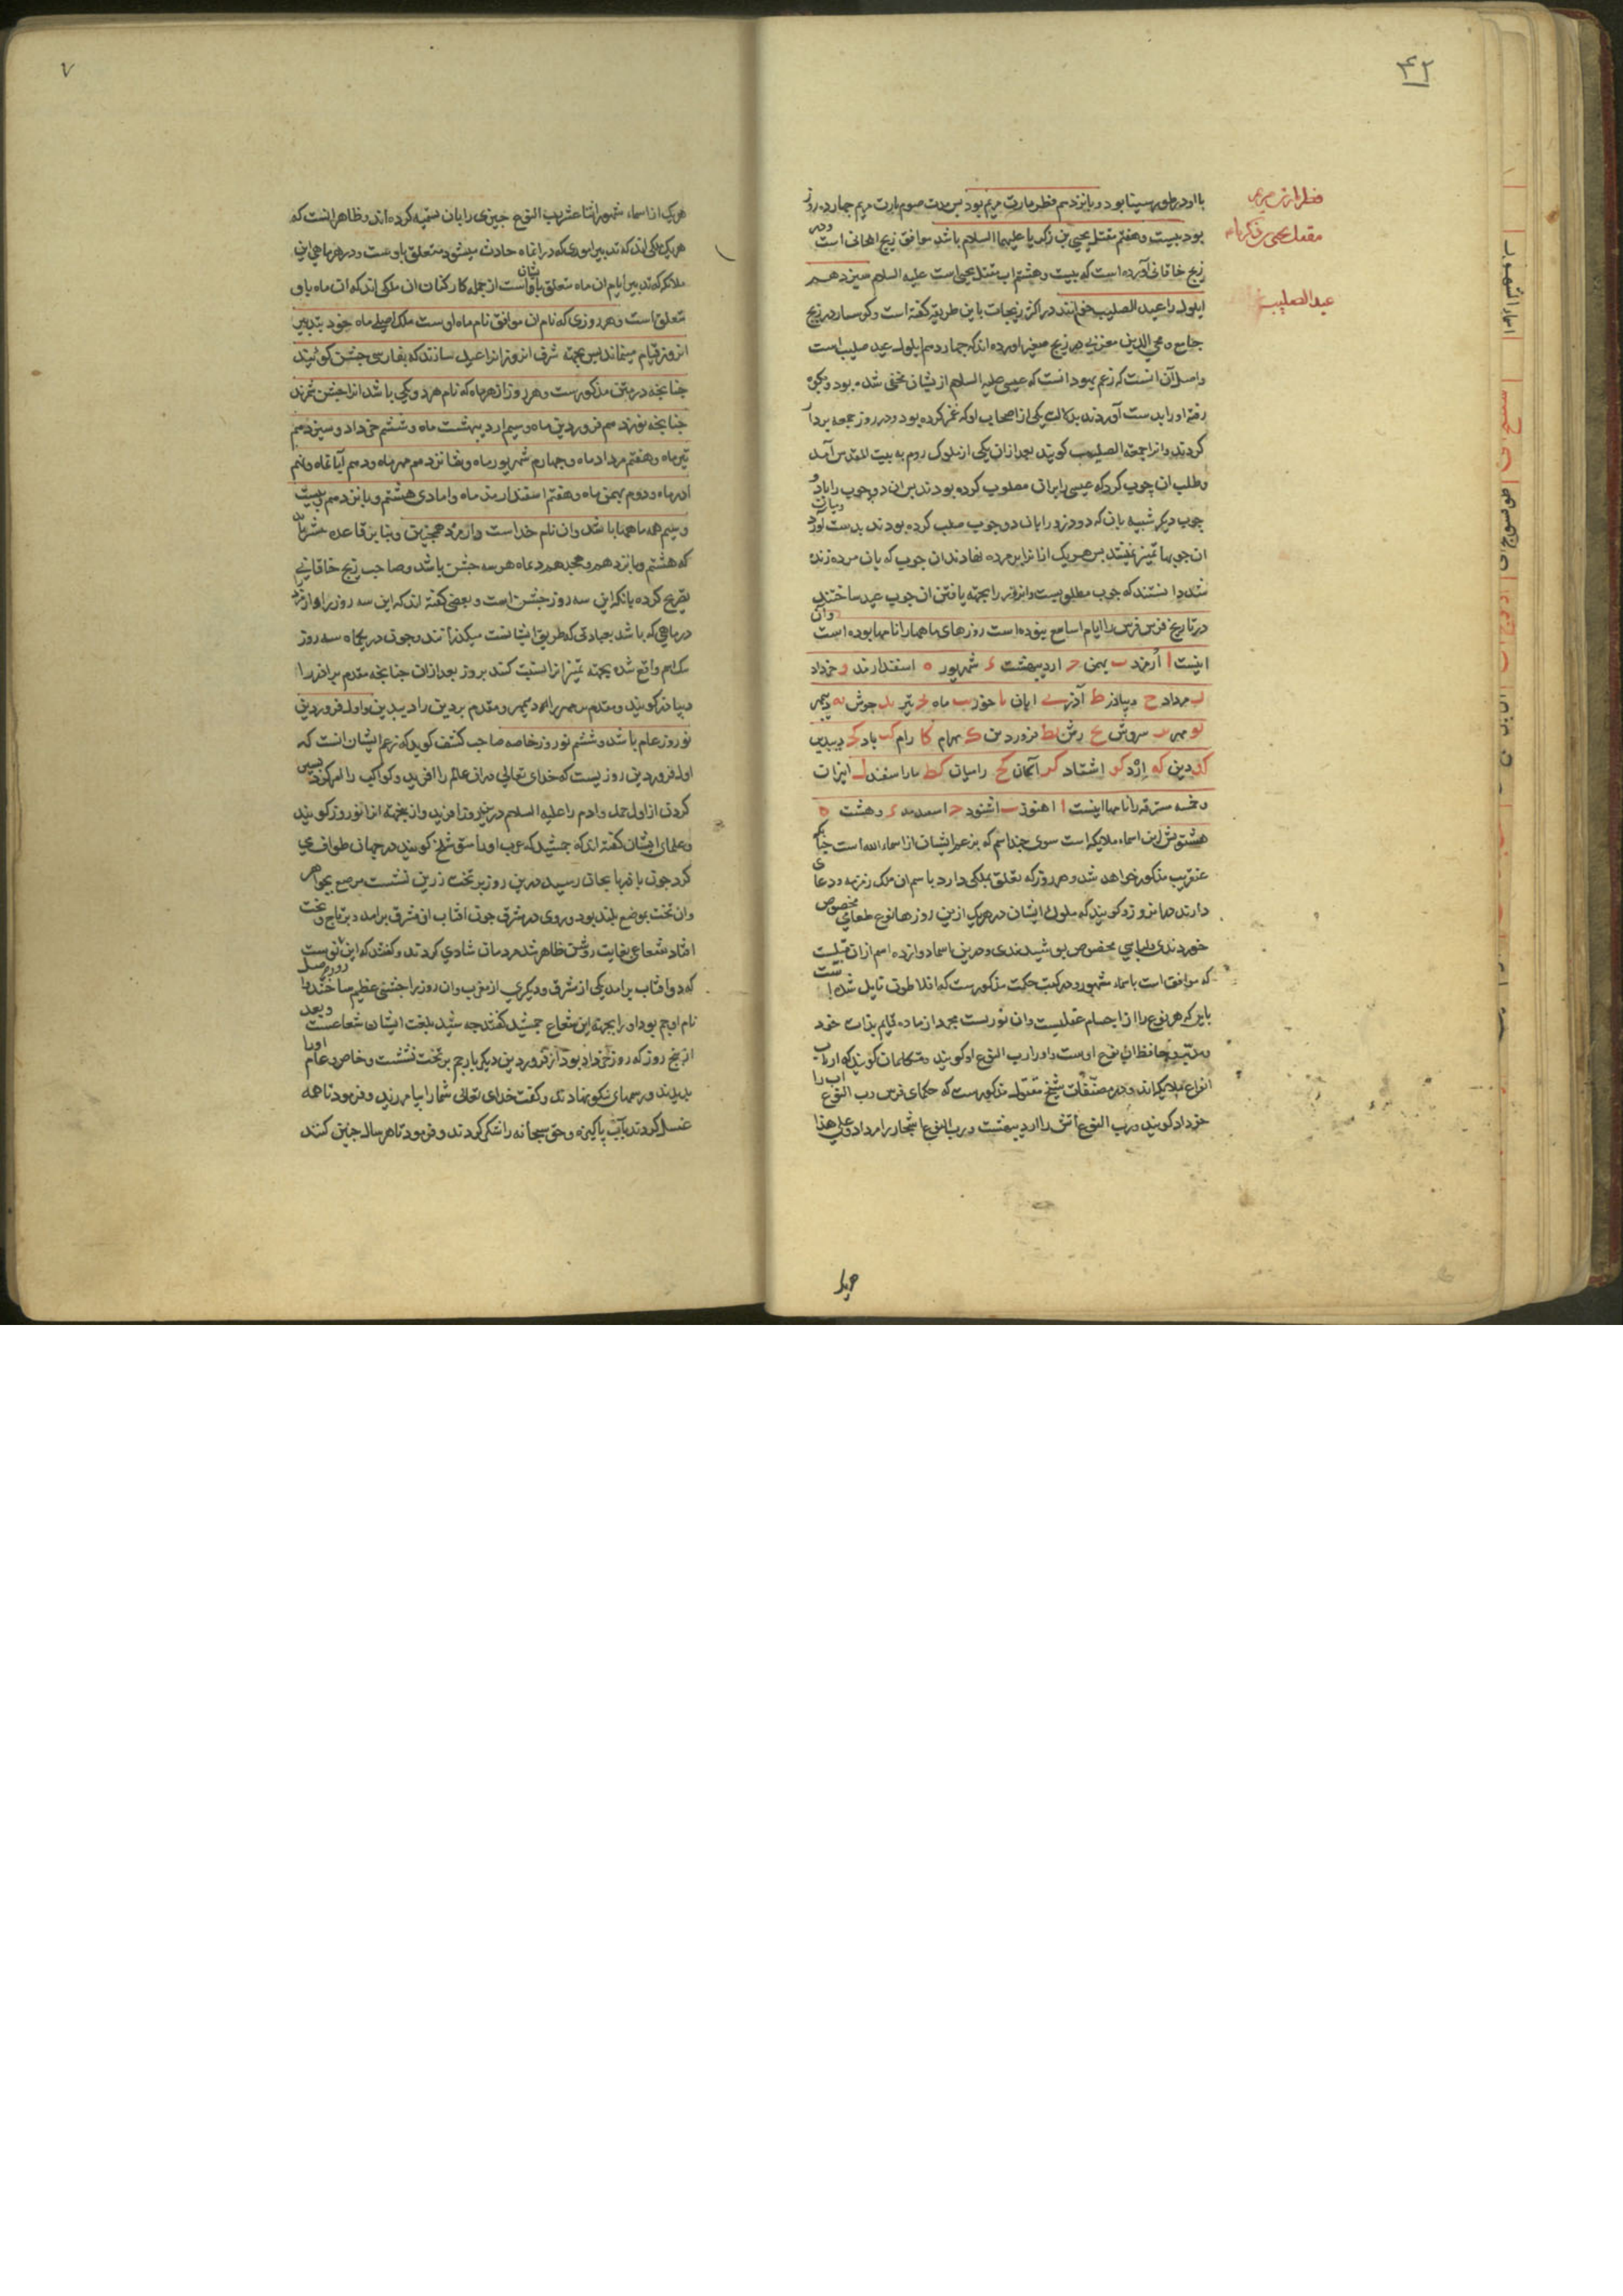 ۴۲
فطر مارت مریم
مقتل یحیی بن زکریا
عید الصلیب
با او در طور سینا بود و پانزدهم فطر مارت مریم بود پس مدت صوم مارت مریم چهارده روز
بود و بیست و هفتم مقتل یحیی بن زکریا علیهما السلام باشد موافق زیج ایلخانی است و در
زیج خاقانی آورده است که بیست و هشتم اب مقتل یحیی است علیه السلام سیزدهم
ایلول را عید الصلیب خوانند در اکثر زیجات باین طریق گفته است و کوشیار در زیج
جامع و محی الدین مغربی در زیج صغیر آورده اند که چهاردهم ایلول عید صلیب است
و اصل آن آنست که زعم یهود آنست که عیسی علیه السلام ازیشان مخفی شده بود و بکوه
رفته او را بدست آوردند بدلالت یکی از اصحاب او که غمز کرده بود و در روز جمعه بردار
کردند و آنرا جمعة الصلیب گویند بعد از آن یکی از ملوک روم به بیت المقدس آمد
و طلب آن چوب کرد که عیسی را بر آن مصلوب کرده بودند پس آن دو چوب را با دو
چوب دیگر شبیه بآن که دو دزد را بآن دو چوب صلب کرده بودند بدست آورد و میان
آن چوبها تمیز نمیشد پس هر یک از آنرا بر مرده نهادند آن چوب که بآن مرده زنده
شد دانستند که چوب مطلوبست و آنروز را بجهة یافتن آن چوب عید ساختند
در تاریخ فرس فرس را ایام اسابیع نبوده است روزهای ماهها را نامها بوده است و آن
اینست ا اُرمزد ب بهمن ج اردیبهشت د شهریور ه اسفندارمذ و خرداد
ز مرداد ح دیباذر ط آذر ی ابان یا خور یب ماه یج تیر ید جوش یه دیبمهر
یو مهر یز سروش یح رشن یط فروردین ک بهرام کا رام کب باد کج دیبدین
کد دین که اِرْد کو اشتاد کز آسمان کح رامیاد کط ماراسفند ل انیران
و خمسه مسترقه را نامها اینست ا اهنود ب اشنود ج اسفندمد د وهشت ه
هشتویش این اسماء ملایکه است سوی چند اسم که بزعم ایشان از اسماء الله است چنانکه
عنقریب مذکور خواهد شد و هر روز که تعلق بملکی دارد باسم آن ملک زمزمه و دعای
دارند در آنروز و گویند که ملوک ایشان در هر یک ازین روزها نوع طعامی مخصوص
خوردندی و لباسی مخصوص پوشیدندی و درین اسما دوازده اسم از آن قبیلست
که موافق است باسماء شهور و در کتب حکمت مذکورست که افلاطون قایل شده است
باین که هر نوع را از اجسام عقلیست و آن نوریست مجرد از ماده قایم بذات خود
و مدبر و حافظ آن نوع اوست و او را رب النوع او گویند و متکلمان گویند که ارباب
انواع ملایکه اند و در مصنفات شیخ مقتول مذکورست که حکمای فرس رب النوع اب را
خرداد گویند و رب النوع آتش را اردیبهشت و رب النوع اشجار را مرداد و علی هذا
هریک
۷
هریک از اسماء شهور اثنا عشر برب النوع چیزی را بآن تسمیه کرده اند و ظاهر آنست که
هر یک ملکی اند که تدبیر اموری که در آنماه حادث میشود متعلق باوست و در هر ماهی این
ملائکه که تدبیر ایام آن ماه متعلق بایشان است از جمله کارکنان آن ملکی اند که آن ماه باو
متعلق است و هر روزی که نام آن موافق نام ماه اوست ملک اصلی ماه خود بتدبیر
آنروز قیام مینماید پس بجهة شرف آنروز آنرا عید سازند که بفارسی جشن گویند
چنانچه در متن مذکورست و هر روز از هر ماه که نام هر دو یکی باشد آنرا جشن شمرند
چنانچه نوزدهم فروردین ماه و سیم اردیبهشت ماه و ششم خرداد و سیزدهم
تیر ماه و هفتم مرداد ماه و چهارم شهریور ماه و شانزدهم مهر ماه و دهم آبانماه و نهم
آذر ماه و دوم بهمن ماه و پنجم اسفندارمذ ماه و اما دی هشتم و پانزدهم و بیست
و سیم همه ماهها باشد و آن نام خداست و ارمزد همچنین و بنابرین قاعده
که هشتم و پانزدهم و بیست و سیم دیماه هر سه جشن باشد و صاحب زیج خاقانی
تصریح کرده بآنکه این سه روز جشن است و بعضی گفته اند که این سه روز را
در ماهی که باشد بعبادتی که طریق ایشانست میگذرانند و چون در یکماه سه روز
یک اسم واقع شده بجهة تمیز آنرا نسبت کنند بروز بعد از آن چنانچه مقدم بر آذر را
دیباذر گویند و مقدم بر مهر را دیبمهر و مقدم بر دین را دیبدین و اول فروردین
نوروز عام باشد و ششم نوروز خاصه صاحب کشف گوید که زعم ایشان آنست که
اول فروردین روزیست که خدای تعالی در آن عالم را آفرید و کواکب را امر کرد بسیر
کردن از اول حمل و آدم را علیه السلام درین روز آفرید و ازینجهة آنرا نوروز گویند
و علمای ایشان گفته اند که جمشید که عرب او را منوشلخ گویند در جهان طواف می
کرد چون باذربایجان رسید درین روز بر تخت زرین نشست مرصع بجواهر
و آن تخت بوضع بلند بود و روی در مشرق چون آفتاب از مشرق برآمد و بر تاج و تخت
افتاد شعاعی بغایت روشن ظاهر شد مردمان شادی کردند و گفتند که این نو روزیست
که دو آفتاب برآمد یکی از مشرق و دیگری از مغرب و آن روز را جشنی عظیم ساختند و اصل
نام او جم بود او را بجهة این شعاع جمشید گفتند چه شید بلغت ایشان شعاعست و بعد
از پنج روز که روز خرداد بود از فروردین دیگر بار جم بر تخت نشست و خاص و عام او را
بدیدند و رسمهای نیکو نهادند و گفت خدای تعالی شما را بیامرزید و فرمود تا همه
غسل کردند بآب پاکیزه و حق سبحانه را شکر کردند و فرمود تا هر سال چنین کنند